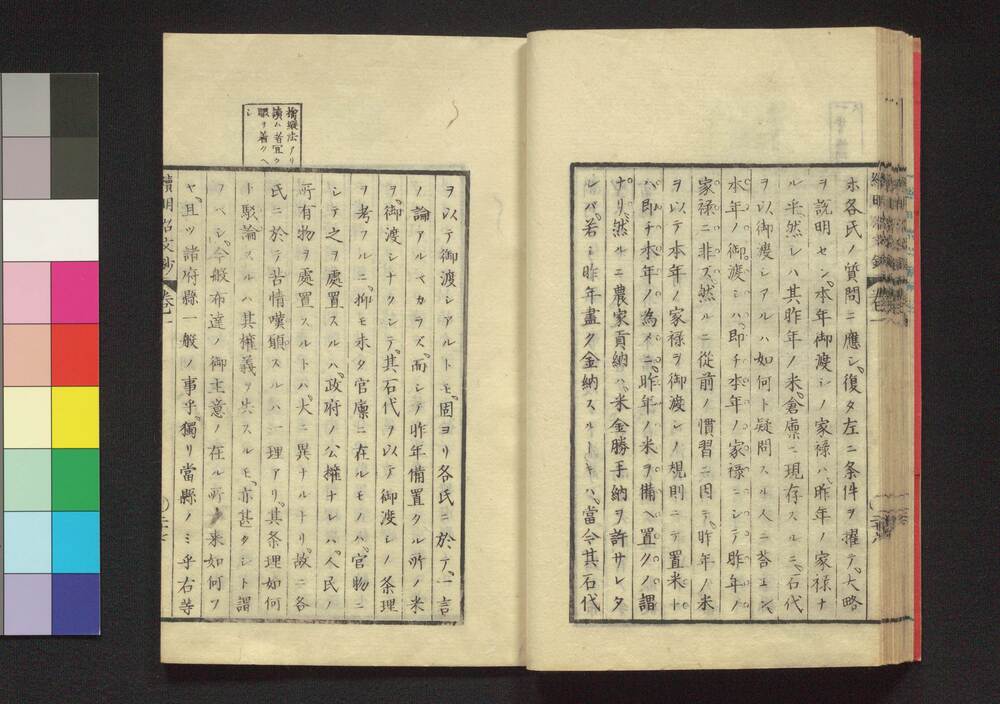 ホ各氏ノ質問ニ應シ復タ左ニ条件ヲ擢テ大略
ヲ說明セン本年御渡シノ家禄ハ昨年ノ家禄ナ
ル乎然レハ其昨年ノ米倉廩ニ現存スルニ石代
ヲ以御渡シアルハ如何ト疑問スル人ニ荅エン
本年ノ御渡シハ即チ本年ノ家禄ニシテ昨年ノ
家禄ニ非ズ然ルニ從前ノ慣習ニ因テ昨年ノ米
ヲ以テ本年ノ家禄ヲ御渡シノ規則ニテ置米ト
ハ即チ本年ノ為メニ昨年ノ米ヲ備ヘ置クノ謂
ナリ然ルニ農家貢納ハ米金勝手納ヲ許サレタ
レバ若シ昨年盡ク金納スルトキハ當今其石代
ヲ以テ御渡シアルトモ固ヨリ各氏ニ於テ一言
ノ論アルベカラズ而シテ昨年備置クル所ノ米
ヲ御渡シナクシテ其石代ヲ以テ御渡シノ条理
ヲ考フルニ抑モ未タ官廩ニ在ルモノハ官物ニ
シテ之ヲ處置スルハ政府ノ公權ナレハ人民ノ
所有物ヲ處置スルトハ大ニ異ナルトリ故ニ各
氏ニ於テ苦情嘆願スルハ一理アリ其条理如何
ト駁論スルハ其權義ヲ失スルモ亦甚タシト謂
フベシ今般布達ノ御主意ノ在ル所ハ果如何ソ
ヤ且ツ諸府縣一般ノ事乎獨リ當縣ノミ乎右等
擒縱法アリ
讀ハ者宜ク
眼ヲ着クヘ
シ
續明治文鈔　卷一